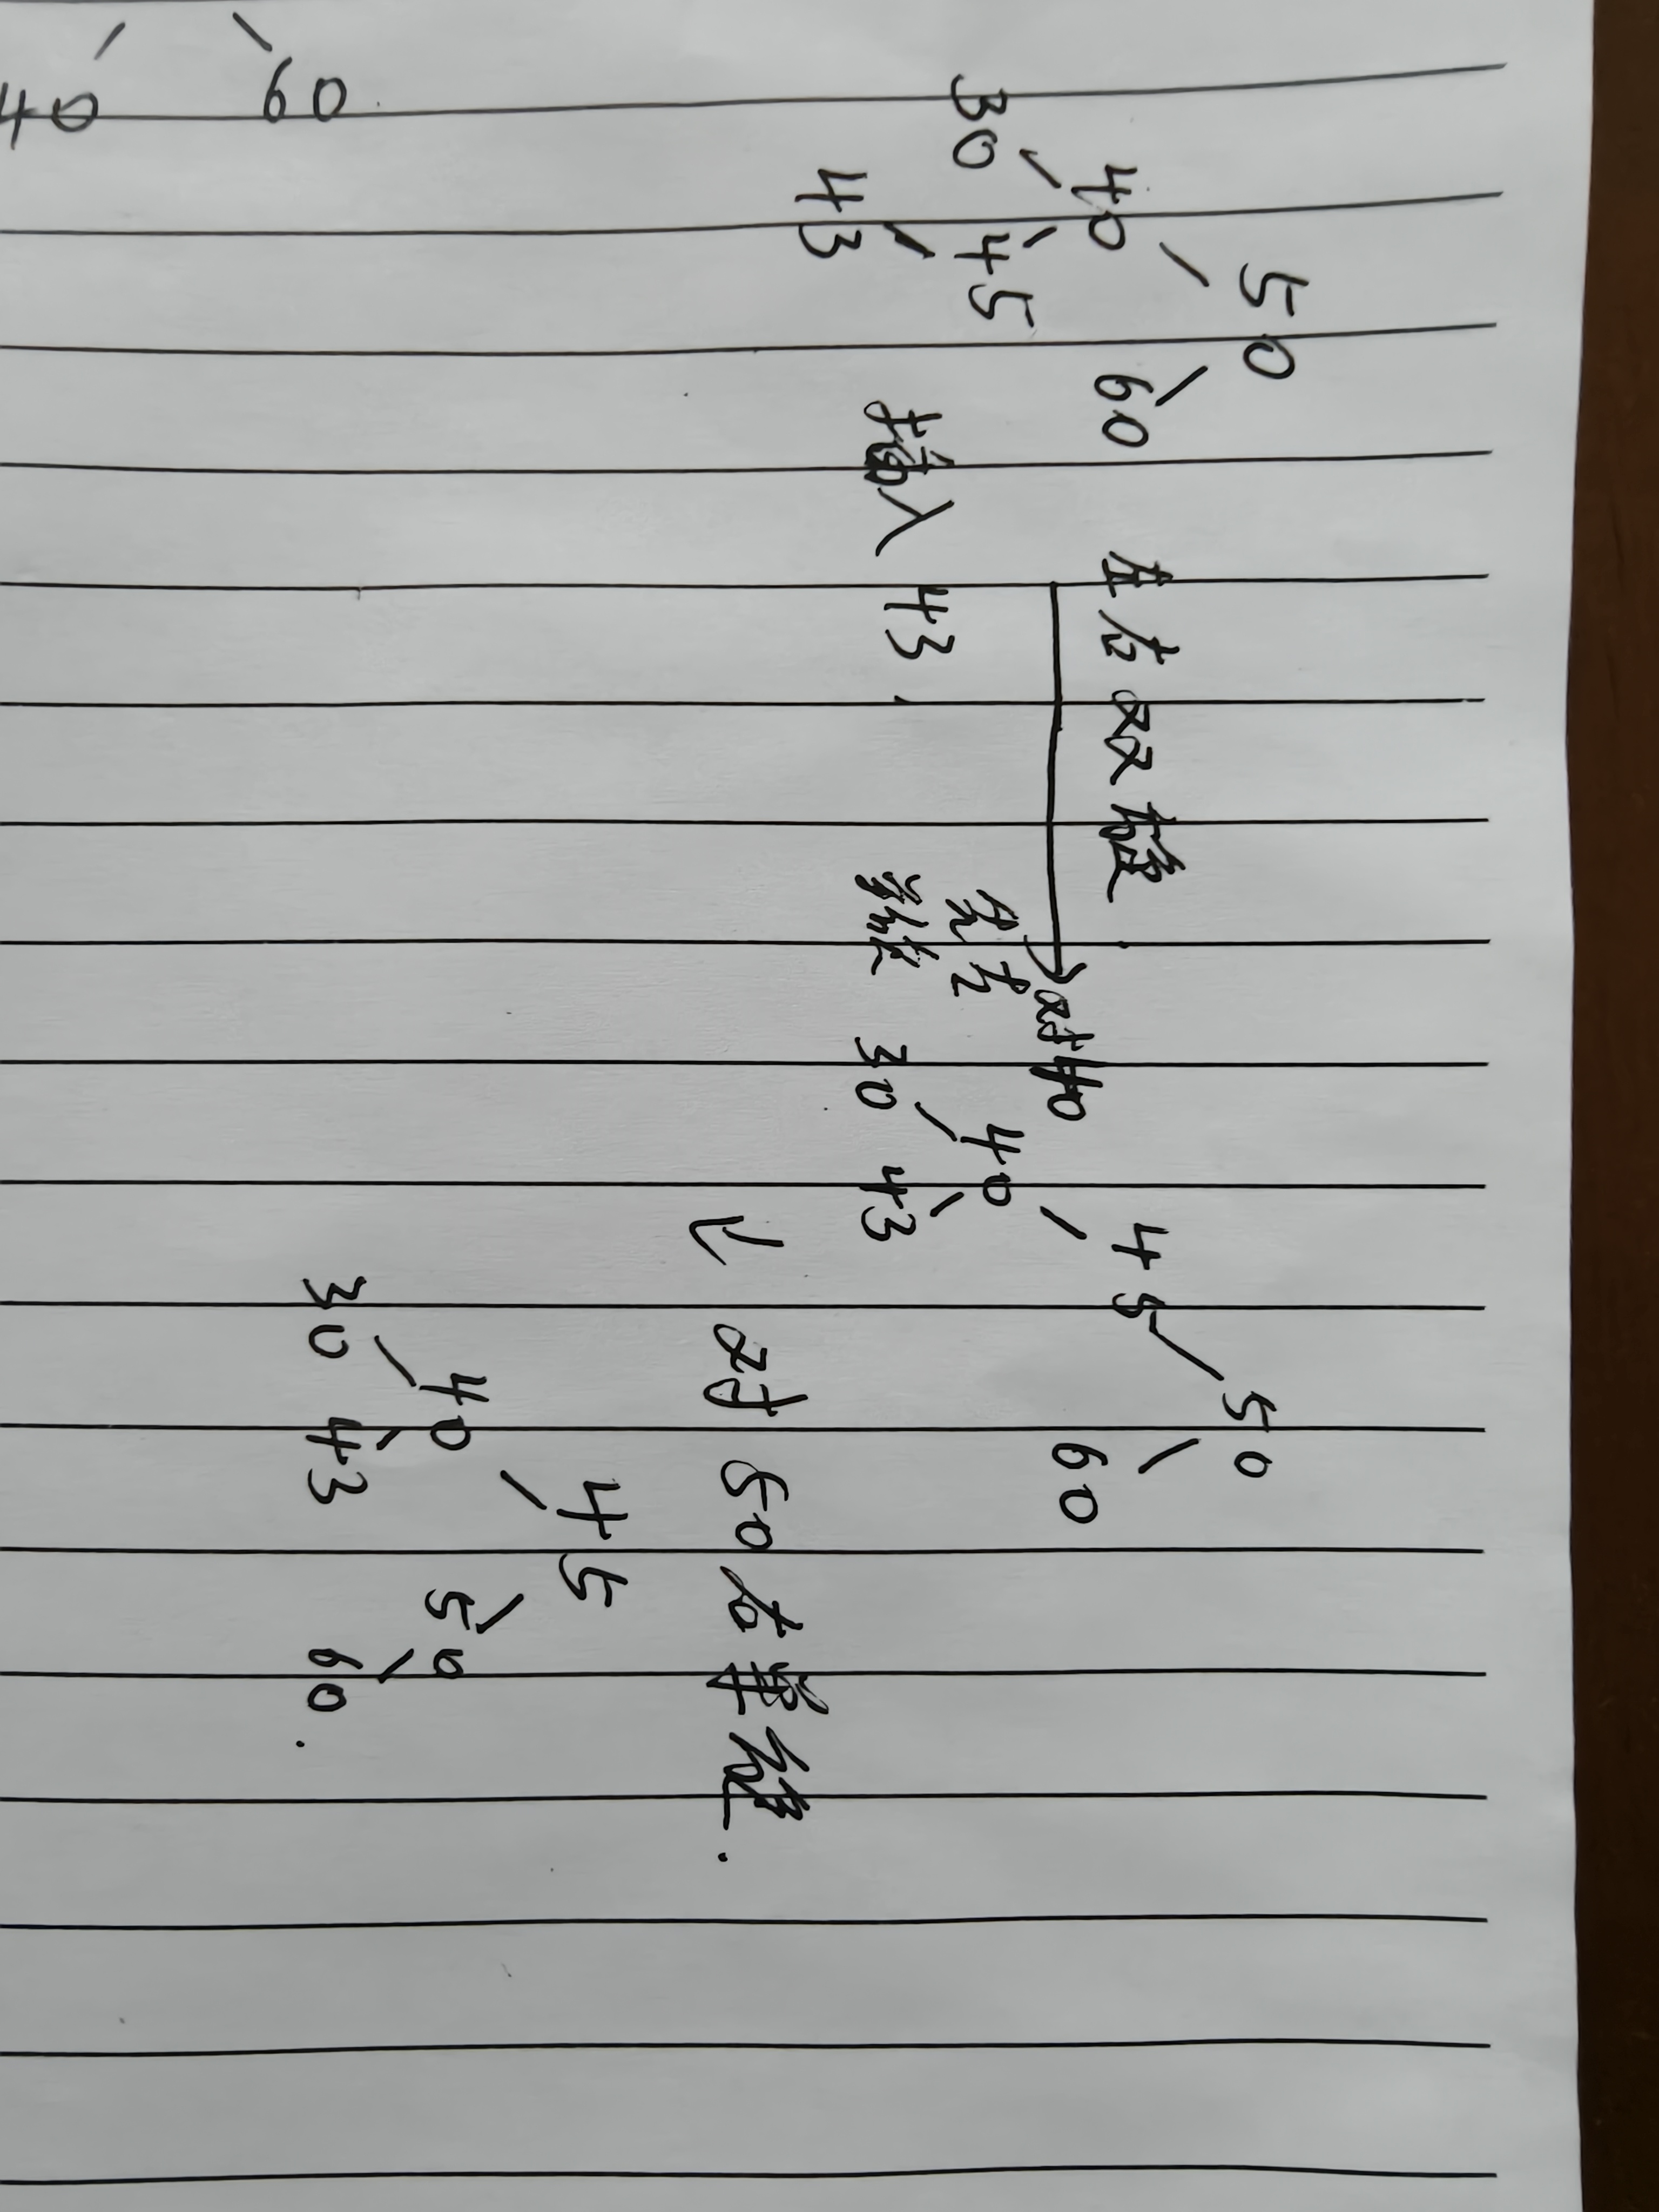 50
40 60
30 45
43
插入 43
左右双旋
对40
先左
单旋
50
45 60
40
30 43
对 50 右单旋.
45
40 50
30 43 60.
40 60